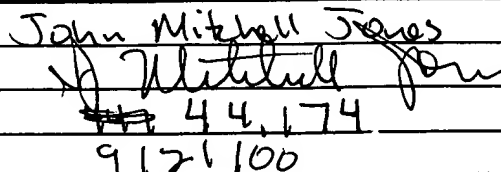 John Mitchell Jones
J Mitchell Jones
44,174
9/21/00